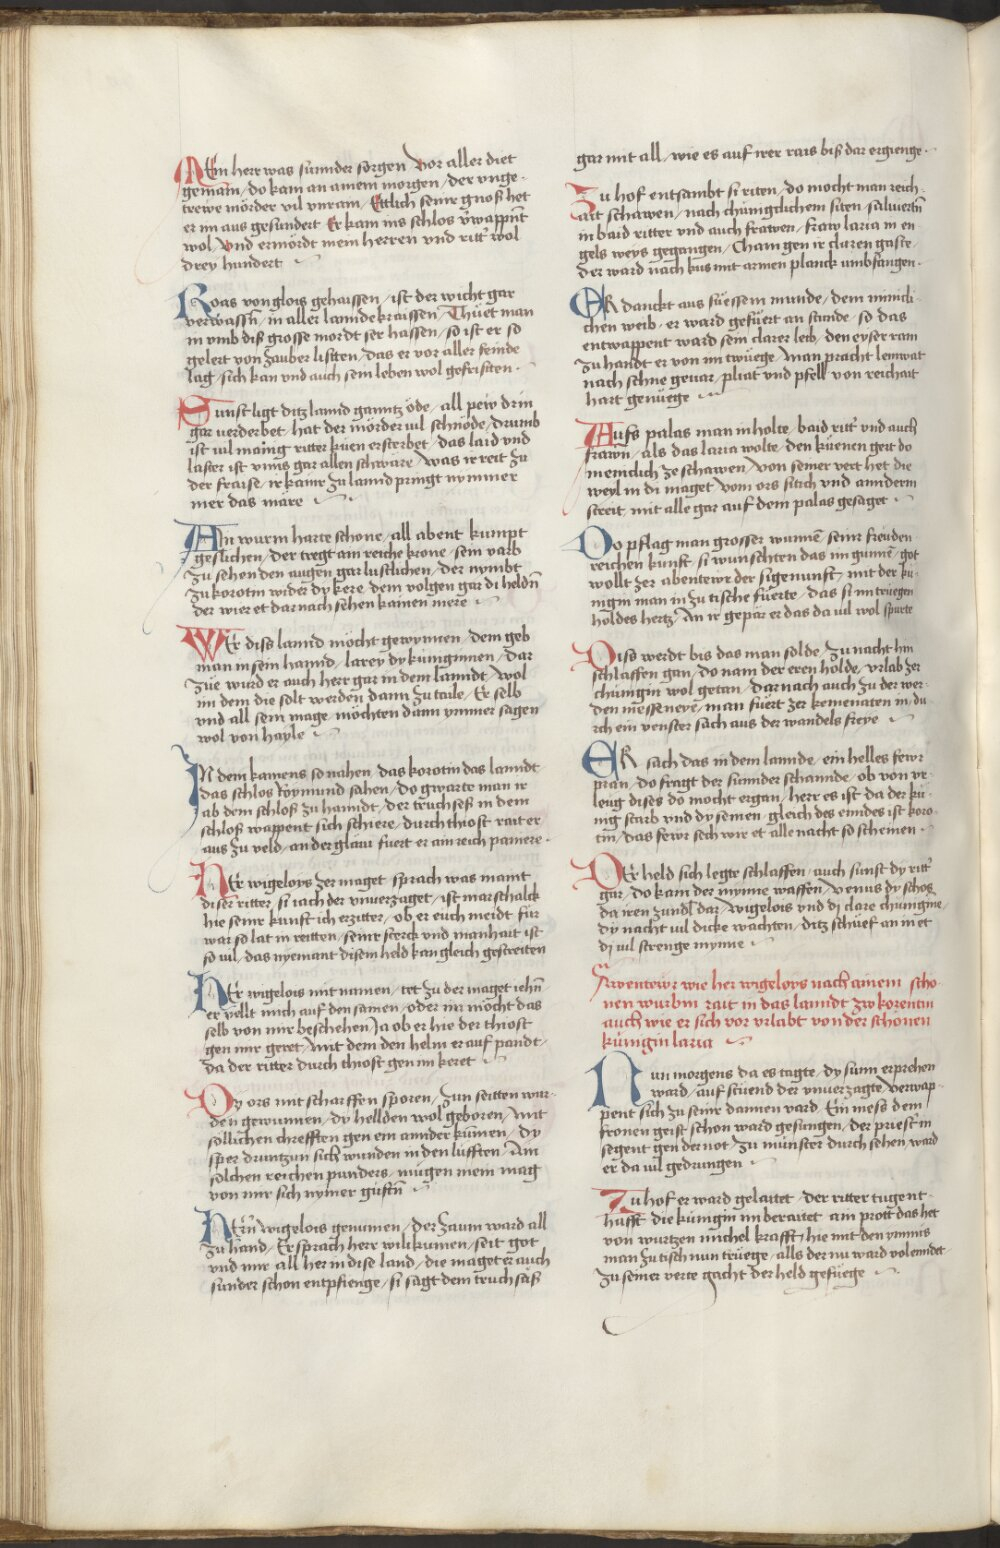 MEin herr was sunnder sorgen / Vor aller diet
gemain / do kam an ainem morgen / der vnge-
trewe mörder vil vnram / Ettlich seinr gnoß het
er im aus gesundert Er kam ins schlos v̈wappnt
wol Vnd ermördt mein herren vnd rittʼ wol
drey hundert
Roas von glois gehaissen / ist der wicht gar
verwassn̄ / in aller lannde kraissen / Thüet man
in vmb diß grosse mordt ser hassen / so ist er so
gelert von zauber lissten / das er vor aller feinde
lag / sich kan vnd auch sein leben wol gefristen ·
Sunst ligt ditz lannd ganntz öde / all pew drin
gar verderbet / hat der mörder vil schnöde / drumb
ist vil maing ritter küen ersterbet / das laid vnd
laster ist vnns gar allen schwäre / was ir reit zu
der fraise / ir kainr zu lannd pringt nymmer
mer das märe
Ain wurm harte schone / all abent kumpt
geslichen / der tregt ain reiche krone / sein varb
zu sehen den augen gar lustlichen / der nymbt
zu korotin wider dy kere / dem volgen gar di heldn̄
der wier et darnach sehen kainen mere
WEr diss lannd möcht gewynnen / dem geb
man in sein hannd / larey dy kunginnen / dar
züe wurd er auch herr gar in dem lanndt / wol
im dem die solt werden dann zu taile / Er selb
vnd all sein mage möchten dann ymmer sagen
wol von hayle
IN dem kamens so nahen / das korotin das lanndt
das schlos Roymund sahen / do gwarte man ir
ab dem schloß zu hanndt / der truchseß in dem
schloß wappent sich schiere / durch thiost rait er
aus zu veld / an der glaui fuert er ain reich paniere ·
HEr wigeloys zer maget sprach was maint
diser ritter / si iach der vnuerzaget / ist marschalck
hie seinr kunft ich erzitter / ob er euch meidt für
war so lat in reitten / seinr sterck vnd manhait ist
so vil / das nyemant disem held kan gleich gestreiten
HEr wigelois mit namen / tet zu der maget iehn̄
er vellt mich auf den samen / oder im möcht das
selb von mir beschehen Ja ob er hie der thiost
gen mir geret / Mit dem den helm er auf pandt /
da der ritter durch thiost gen im keret
Dy ors mit scharffen sporen / zun seitten war-
den gewunnen / dy hellden wol geboren / Mit
sollichen chrefften gen ein annder künnen / dy
sper druntzun sich wunden in den lüfften / Am
solchen reichen punders / mügen mein mag
von mir sich nymer güftn̄
HErn̄ wigelois genumen / der zaum ward all
zu hand / Er sprach herr wilikumen / seit got
vnd mir all her in dise land / die maget er auch
sunder schon entpfienge / si sagt dem truchsäß
gar mit all / wie es auf irer rais biß dar ergienge ·
Zu hof entsambt si riten / do mocht man reich-
ait schawen / nach chünigclichem siten / saluiertn̄
in baid ritter vnd auch frawen / fraw laria in en-
gels weys gegangen / Cham gen ir claren gaste
der ward nach kus mit armen planck vmbfangen ·
ER danckt aus süessem munde / dem minikli-
chen weib / er ward gefüert an stunde / so das
entwappent ward sein clarer leib / den eyser ram
zu handt er von im twüege / Man pracht leinwat
nach schne geuar / pliat vnd pfell von reichait
hart genüege
Aufs palas man in holte / baid rittʼ vnd auch
frawn̄ / als das laria wolte / den küenen gert do
menniclich ze schawen / von seiner vert het die
weyl in di maget / vom ors stich vnd annderm
streit / mit alle gar auf dem palas gesaget
Do pflag man grosser wunnē / seinr freuden
reichen kunft / si wunschten das im gunnē / got
wollt zer abentewr der sigenunft / mit der kü-
nigin man in zu tische füerte / das si im truegen
holdes hertz / An ir gepär er das da vil wol spurte
Diss werdt bis das man solde / zu nacht hin
schlaffen gan / do nam der eren holde / vrlab zer
chünigin wol getan / darnach auch zu der wer-
den messeneyē / man füert zer kemenaten in / du
rch ein venster sach aus der wandels freye
ER sach das in dem lannde / ein helles fewr
pran / do fragt der sunnder schannde / ob von vr-
leug dises do mocht ergan / herr es ist da der kü-
nig starb vnd dy seinen / gleich des enndes ist koro-
tin / das fewr sech wir et alle nacht so scheinen ·
DEr held sich legte schlaffen / auch sunst dy rittʼ
gar / do kam der mynne waffen / venus dy schoß
da iren zundl dar / wigelois vnd di clare chunigine /
dy nacht vil dicke wachten / ditz schüef an in et
di vil strenge mynne
Awentewr wie her wigeloys nach ainem scho-
nen wurbm rait in das lanndt zw korentin
auch wie er sich vor vrlabt von der schönen
künigin laria
Nun morgens da es tagte / dy sunn erprehen
ward / auf stuend der vnuerzagte / verwap-
pent sich zu seinr dannen vard / Ein mess dem
fronen geist schon ward gesungen / der priestʼ in
segent gen der not / zu münster durch sehen ward
er da vil gedrungen
Zu hof er ward gelaitet / der ritter tugent-
hafft / die künigin im beraitet / ain prott das het
von wurtzen michel krafft / hie mit den ymmis
man zu tisch nun trüege / alls der nu ward volenndet /
zu seiner verte gacht der held gefüege